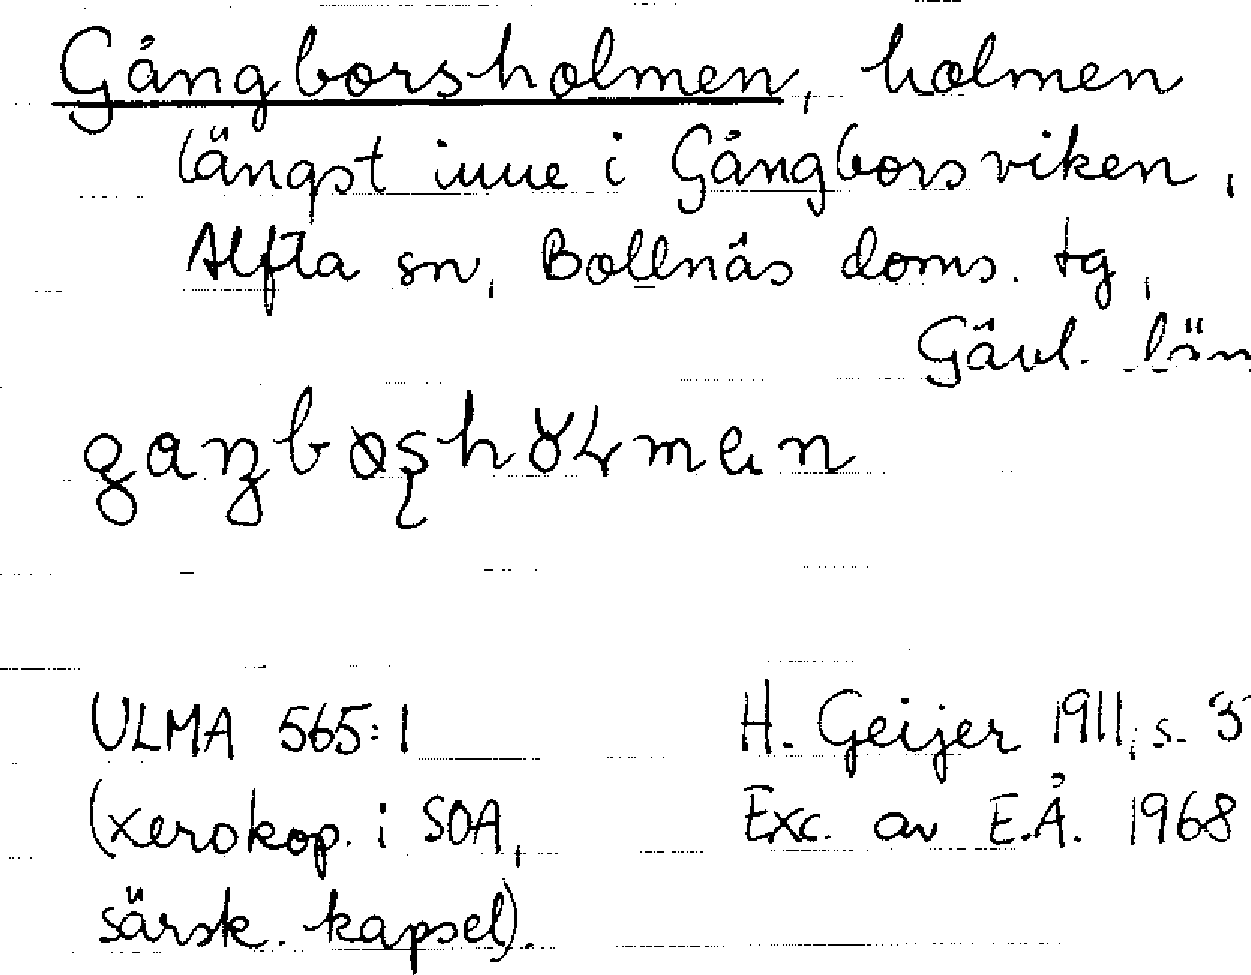 Gångborsholmen, holmen
längst inne i Gångborsviken,
Alfta sn, Bollnäs doms. tg,
Gävl. län
ULMA 565:1
(xerokop. i SOA,
särsk. kapsel).
H. Geijer 1911, s.
Exc. av E.Å. 1968